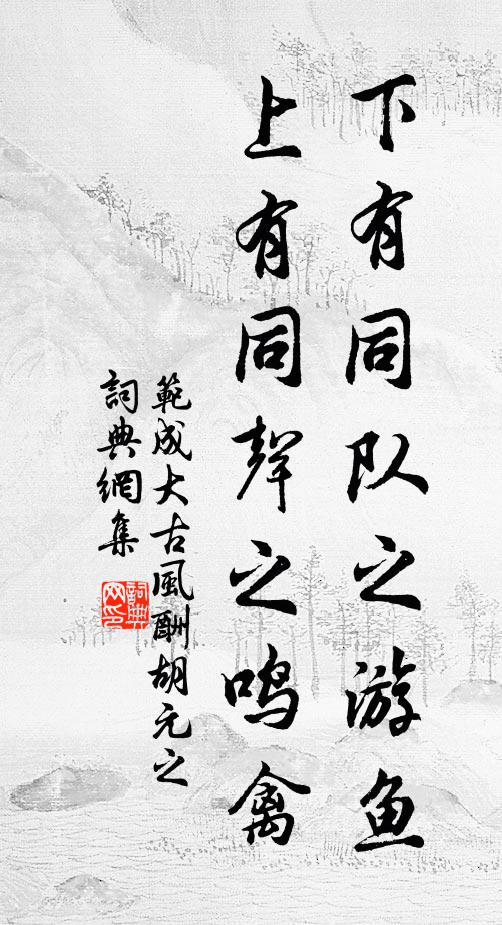 下有同队之游鱼
上有同聲之鸣禽
範成大古風酬胡元之
詞典網集
詞典
网印